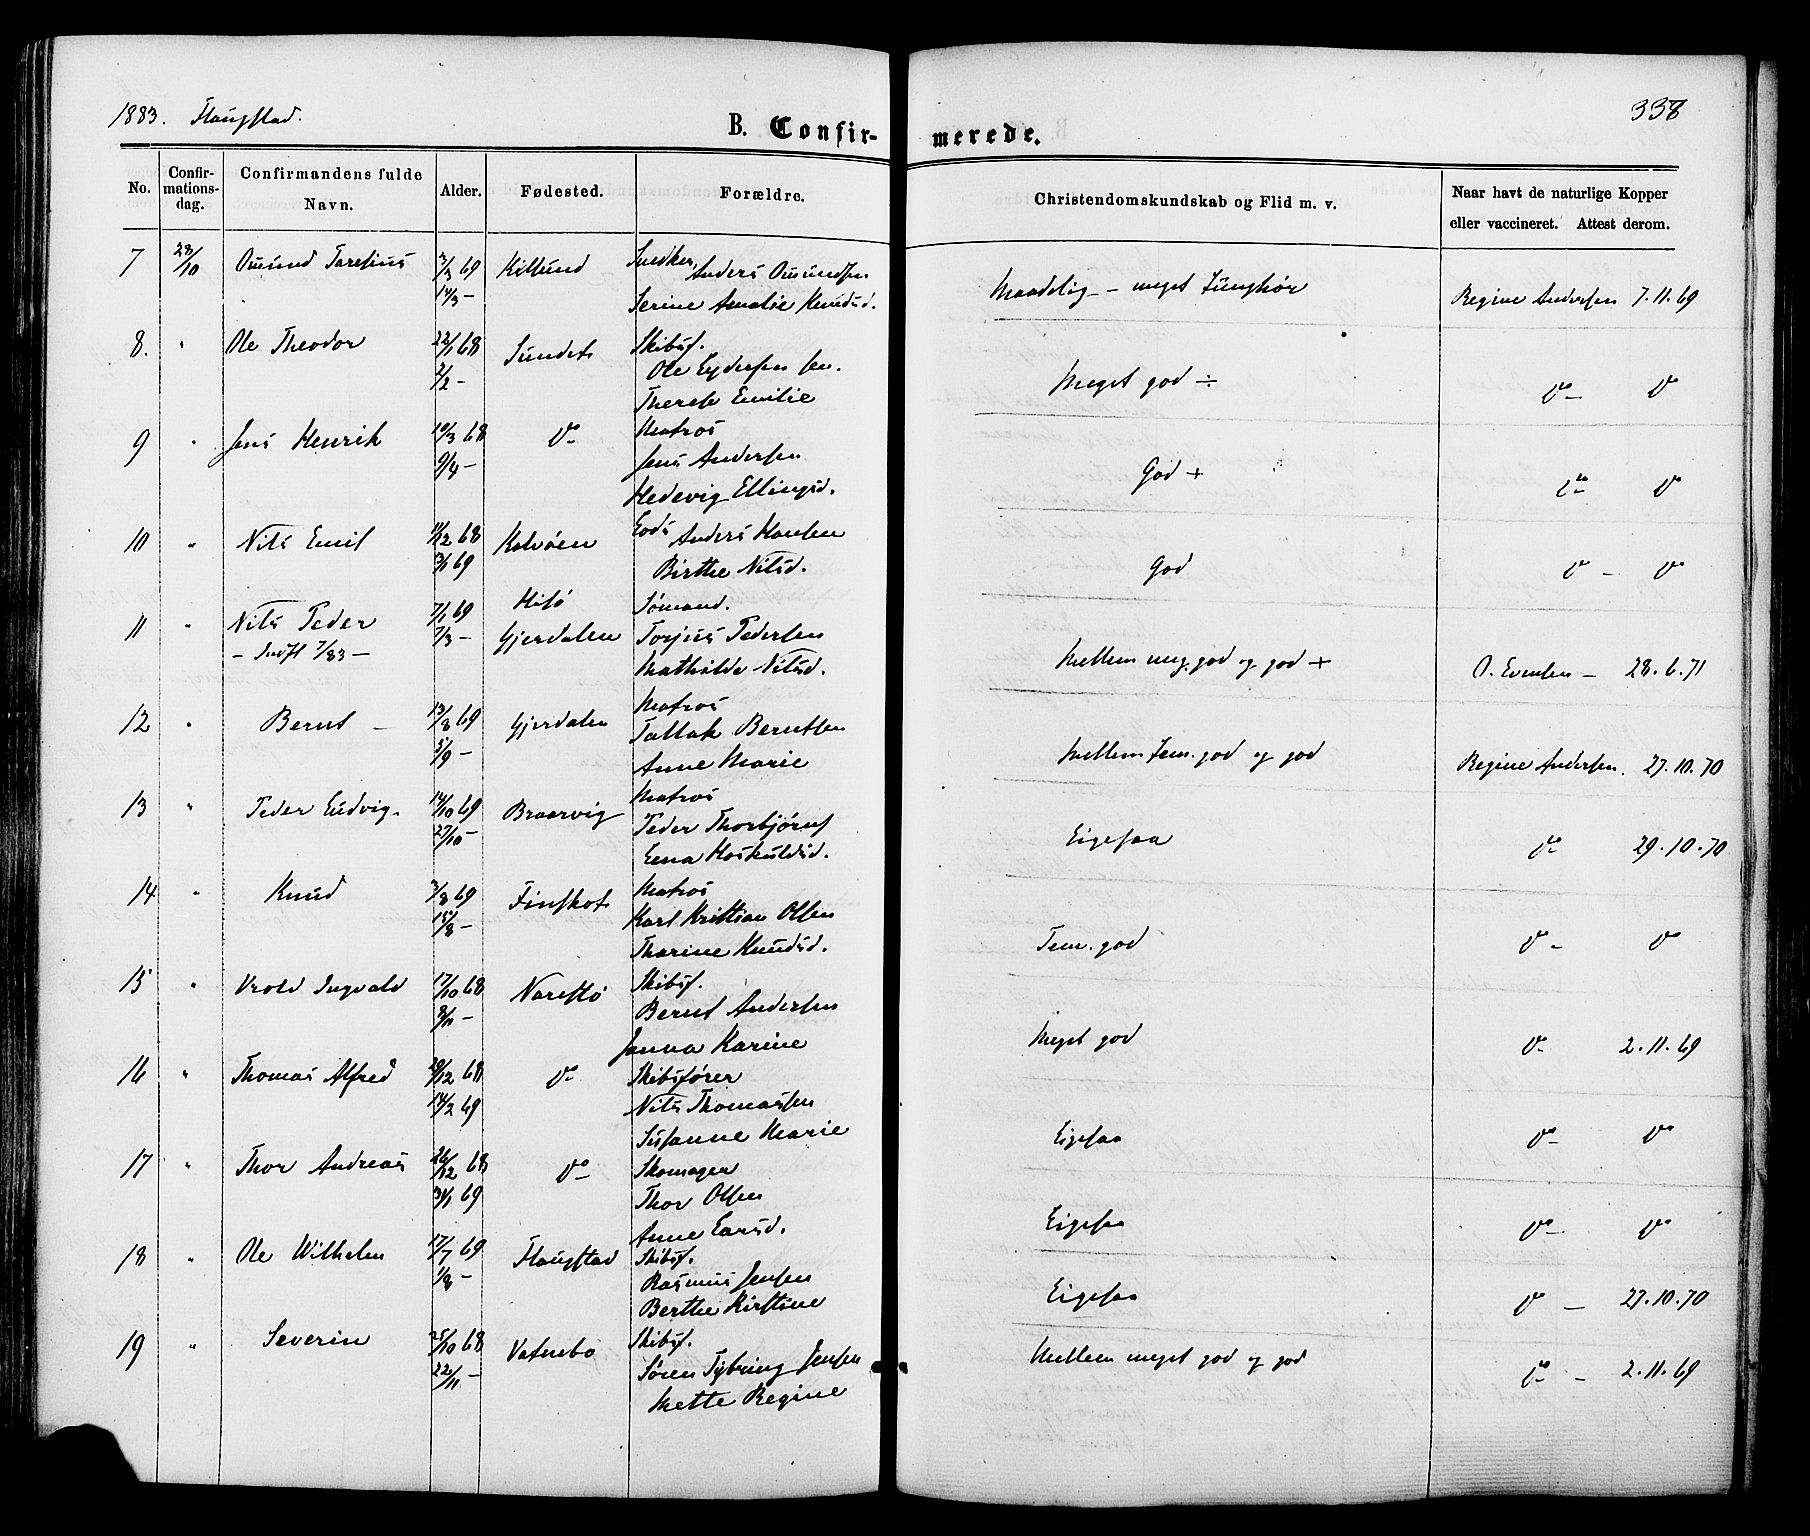 1883. Flangstad.
338
B. Confir-
merede.
No.
Confir-
mations-
dag.
Confirmandens fulde
Navn.
Alder.
Fødested.
Forældre.
Christendomskundskab og Flid m. v.
Naar havt de naturlige Kopper
eller vaccineret. Attest derom.
7 28/10 Omund Teresius 69 Killund Snedker Anders Omundsen
14/3 – Serine Amalie Knudsd.
Maadelig – meget Tunghør Regine Andersen 7.11.69
8. " Ole Theodor 22/1 68 Sundet Skibsf.
2/2 – Ole Eydersen sen.
Therese Emilie
Meget god ÷ Do – Do
9 " Jens Henrik 10/3 68 Do Matros
9/4 – Jens Andersen
Hedevig Ellingsd.
God + Do Do
10 " Nils Emil 11/12 68 Kalvøen Lods Anders Hansen
3/1 69 Birthe Nilsd.
God Do – Do
11 " Nils Peder 7/1 69 Hisø Sømand.
– Indfl 7/83 – 7/3 – Gjerdalen Torjus Pedersen
Mathilde Nilsd.
Mellem meg. god og god + O. Evensen – 28.6.71
12 " Bernt – 13/8 69 Gjerdalen Matros
5/9 – Tallak Berntsen
Anne Marie
Mellem Tem. god og god Regine Andersen. 27.10.70
13 " Peder Ludvig. 14/10 69 Braarvig Matros
27/10 – Peder Thorbjørns
Lena Hoskuldsd.
Ligesaa Do 29.10.70
14 " Knud 3/8 69 Finskot Matros
15/8 – Karl Kristian Olsen
Tharine Knudsd.
Tem. god Do – Do
15 " Vrold Ingvald 17/10 68 Narestø Skibsf.
8/11 – Bernt Andersen
Janna Karine
Meget god Do 2.11.69
16 " Thomas Alfred 29/12 68 Do Skibsfører
14/2 69 Nils Thomassen
Susanne Marie
Ligesaa Do Do
17 " Thor Andreas 26/12 68 Do Skomager
31/1 69 Thor Olsen
Anne Larsd.
Ligesaa Do Do
18 " Ole Wilhelm 17/7 69 Flangstad Skibsf.
1/8 – Rasmus Jensen
Berthe Kirstine
Ligesaa Do – 27.10.70
19 " Severin 25/10 68 Vatnebo Skibsf.
22/11 – Søren Tybring Jensen
Mette Regine
Mellem meget god og god Do – 2.11.69